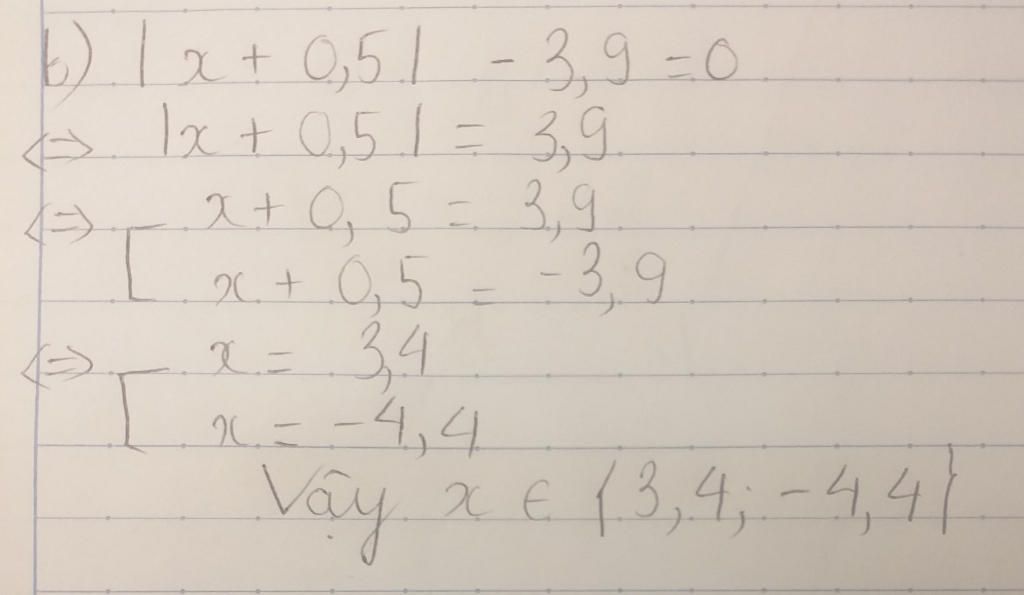 b) |x + 0,5| - 3,9 = 0
<=> |x + 0,5| = 3,9
<=> [ x + 0,5 = 3,9
x + 0,5 = -3,9
<=> [ x = 3,4
x = -4,4
Vậy x ∈ {3,4; -4,4}